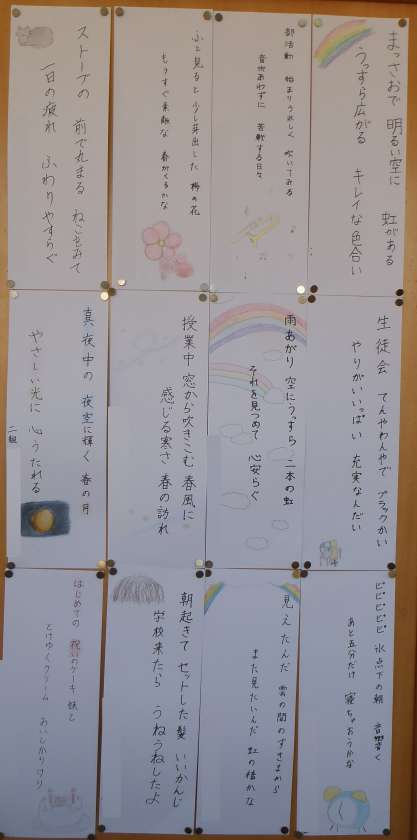 まっさおで 明るい空に 虹がある
うっすら広がる キレイな色合い
部活動 始まりうれしく 吹いてみる
音あわずに 苦戦する日々
ふと見ると 少し芽出した 梅の花
もうすぐ素敵な 春がくるかな
ストーブの 前で丸まる ねこをみて
一日の疲れ ふわりやすらぐ
生徒会 てんやわんやで ブラックかい
やりがいいっぱい 充実なんだい
雨あがり 空にうっすら 二本の虹
それを見つめて 心安らぐ
授業中 窓から吹きこむ 春風に
感じる寒さ 春の訪れ
真夜中の 夜空に輝く 春の月
やさしい光に 心うたれる
二組
ピピピピピ 氷点下の朝 音響く
あと五分だけ 寝ちゃおうかな
見えたんだ 雲の間のすきまから
また見たいんだ 虹の橋かな
朝起きて セットした髪 いいかんじ
学校来たら うねうねしたよ
はじめての 祝いのケーキ 妹と
とけゆくクリーム あいとかりけり